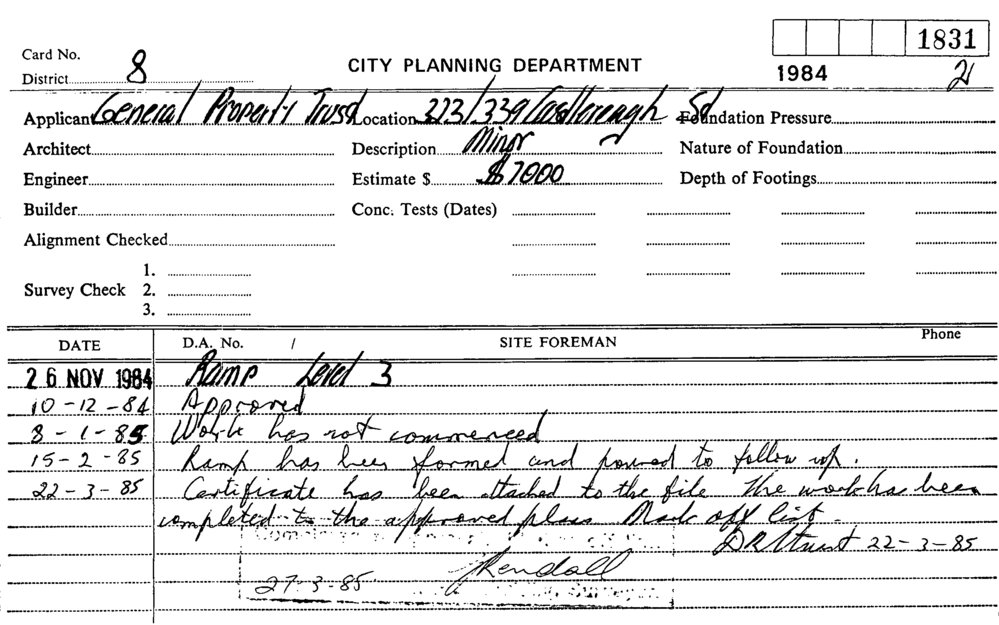 1831
Card No.
District 8
CITY PLANNING DEPARTMENT
1984
2
Applicant General Property Trust Location 323/339 Castlereagh St Foundation Pressure
Architect Description Minor Nature of Foundation
Engineer Estimate $ $7000 Depth of Footings
Builder Conc. Tests (Dates)
Alignment Checked
1.
Survey Check 2.
3.
DATE D.A. No. / SITE FOREMAN Phone
26 NOV 1984 Ramp Level 3
10-12-84 Approved
8-1-85 Work has not commenced
15-2-85 Ramp has been formed and poured to follow up.
22-3-85 Certificate has been attached to the file The work has been
completed to the approved plans Mark off list.
22-3-85
Kendall
27-3-85